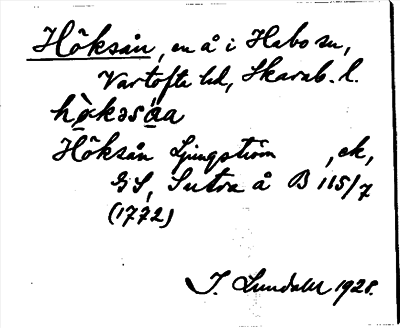 Höksån, en å i Habo sn,
Vartofte hd, Skarab. l.
hö̀kəsά̱a
Höksån Ljungström, ek,
GS, Sutra å B 115/7
(1772)
J. Lundahl 1928.